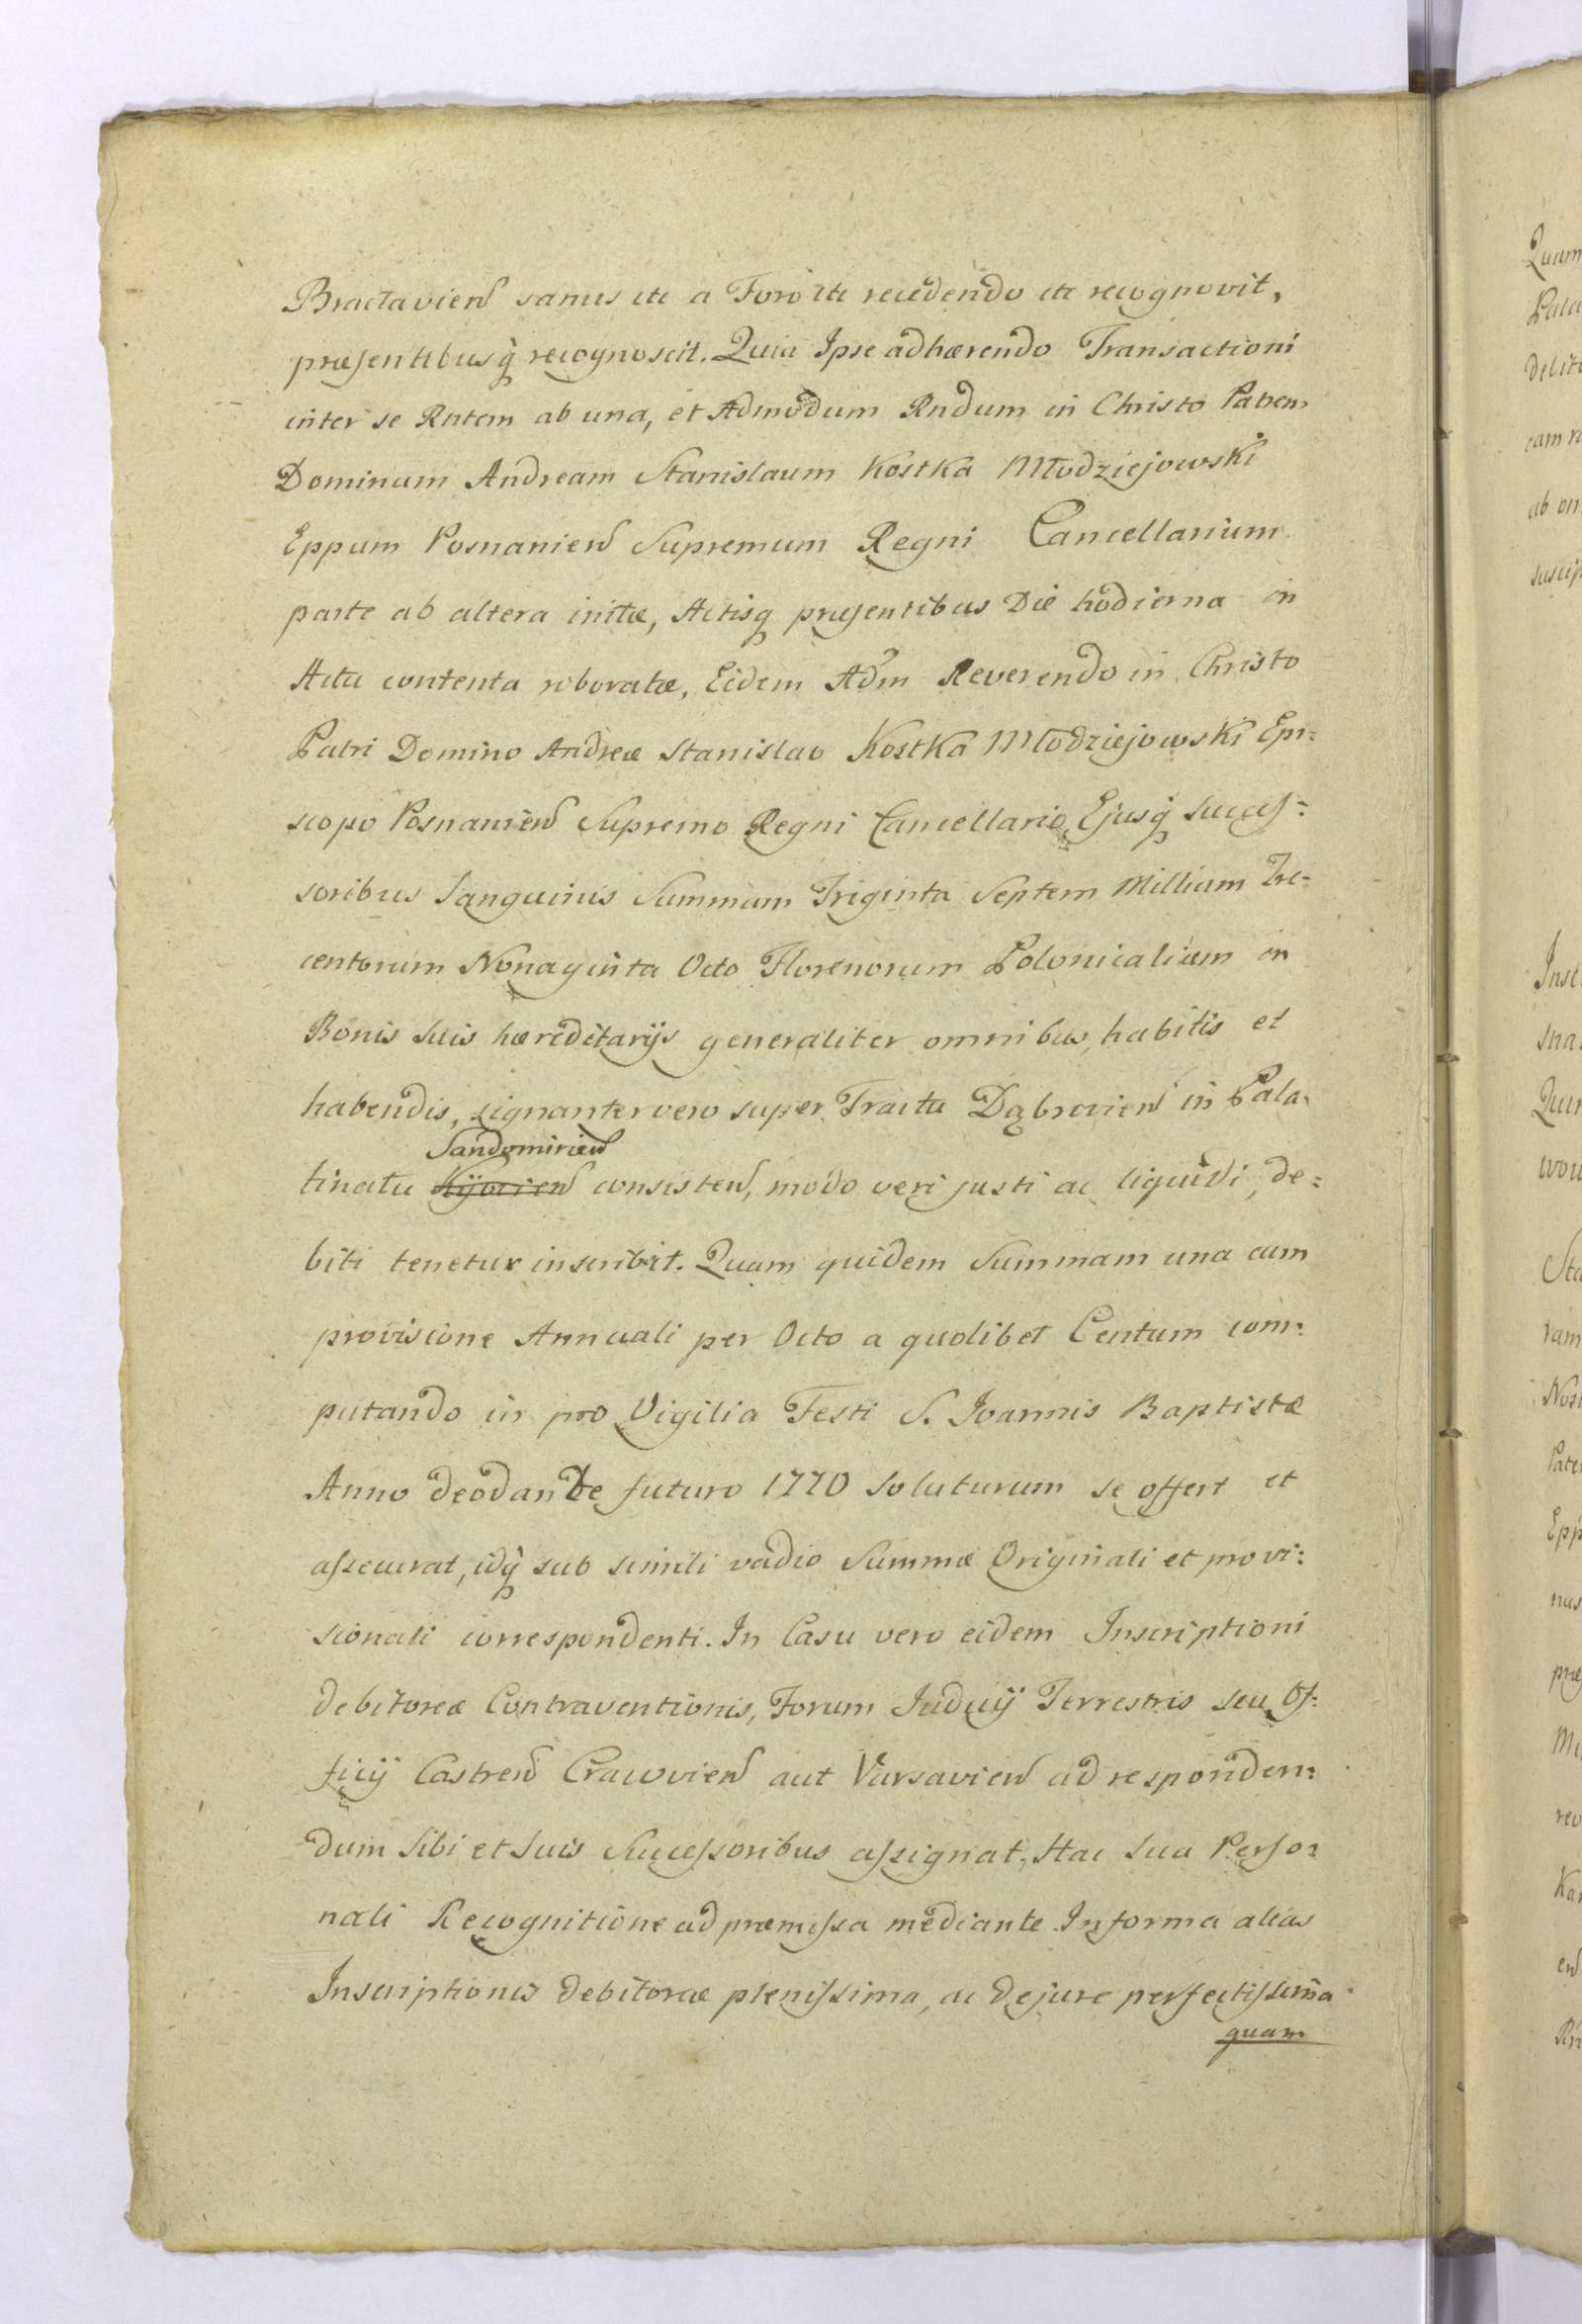 Braclavien sanus etc a Foro etc recedendo etc recognovit,
præsentibusq recognoscit. Quia Ipse adhærendo Transactioni
inter se Rntem ab una, et Admodum Rndum in Christo Patrem
Dominum Andream Stanislaum Kostka Młodziejowski
Eppum Posnanien Supremum Regni Cancellarium
parte ab altera initæ, Actisq præsentibus Die hodierna in
Acta contenta roboratæ, Eidem Adm Reverendo in Christo
Patri Domino Andreæ Stanislao Kostka Młodziejowski Epi=
scopo Posnanien Supremo Regni Cancellario, Ejusq Succes=
soribus Sanguinis Summam Triginta Septem Millium Tre-
centorum Nonaginta Octo Florenorum Polonicalium in
Bonis Suis hæreditarijs generaliter omnibus, habitis et
habendis, signanter vero super Tractu Dąbrovien in Pala-
Sandomirien
tinatu Kijovien consisten, modo veri justi ac liquidi, de=
biti tenetur inscribit. Quam quidem Summam una cum
provisione Annuali per Octo a quolibet Centum com=
putando in pro Vigilia Festi S. Joannis Baptistæ
Anno deodante futuro 1770 soluturum se offert et
assecurat, idq sub simili vadio Summæ Originali et provi=
sionali correspondenti. In Casu vero eidem Inscriptioni
debitoreæ Contraventionis, Forum Judicij Terrestris seu Of=
ficij Castren Cracovien aut Varsavien ad responden=
dum Sibi et Suis Successoribus assignat, Hac Sua Perso=
nali Recognitione ad præmissa mediante. In forma alias
Inscriptionis debitoreæ plenissima, ac de jure perfectissima
quam
Quam